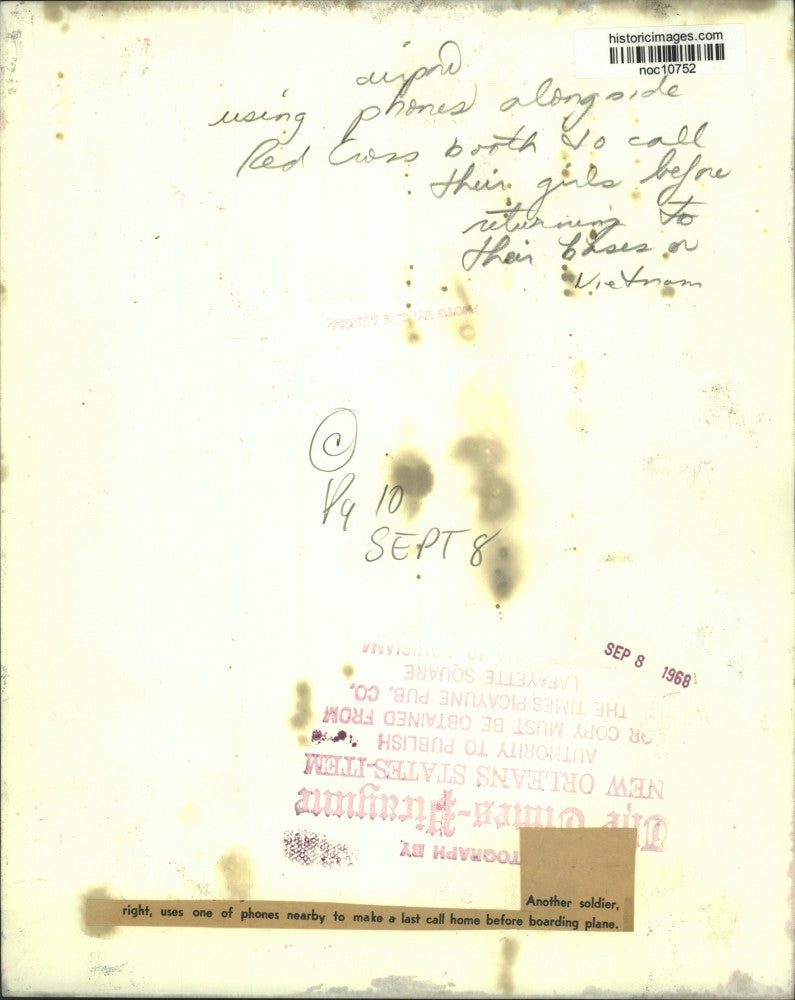 historicimages.com
noc10752
airport
using phones alongside
Red Cross booth to call
their girls before
returning to
their bases or
Vietnam
©
Pg 10
SEPT 8
SEP 8 1968
LOUISIANA
LAFAYETTE SQUARE
THE TIMES-PICAYUNE PUB. CO.
OR COPY MUST BE OBTAINED FROM
AUTHORITY TO PUBLISH
NEW ORLEANS STATES-ITEM
The Times-Picayune
TOGRAPH BY
Another soldier,
right, uses one of phones nearby to make a last call home before boarding plane.